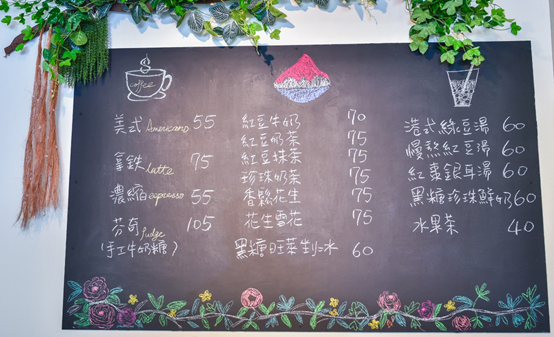 coffee
美式 Americano 55
拿鉄 Latte 75
濃縮 espresso 55
芬奇 fudge 105
(手工牛奶糖)
紅豆牛奶 70
紅豆奶茶 75
紅豆抹茶 75
珍珠奶茶 75
香鬆花生 75
花生雪花 75
黑糖旺萊剉冰 60
港式綠豆湯 60
慢熬紅豆湯 60
紅棗銀耳湯 60
黑糖珍珠鮮奶 60
水果茶 40